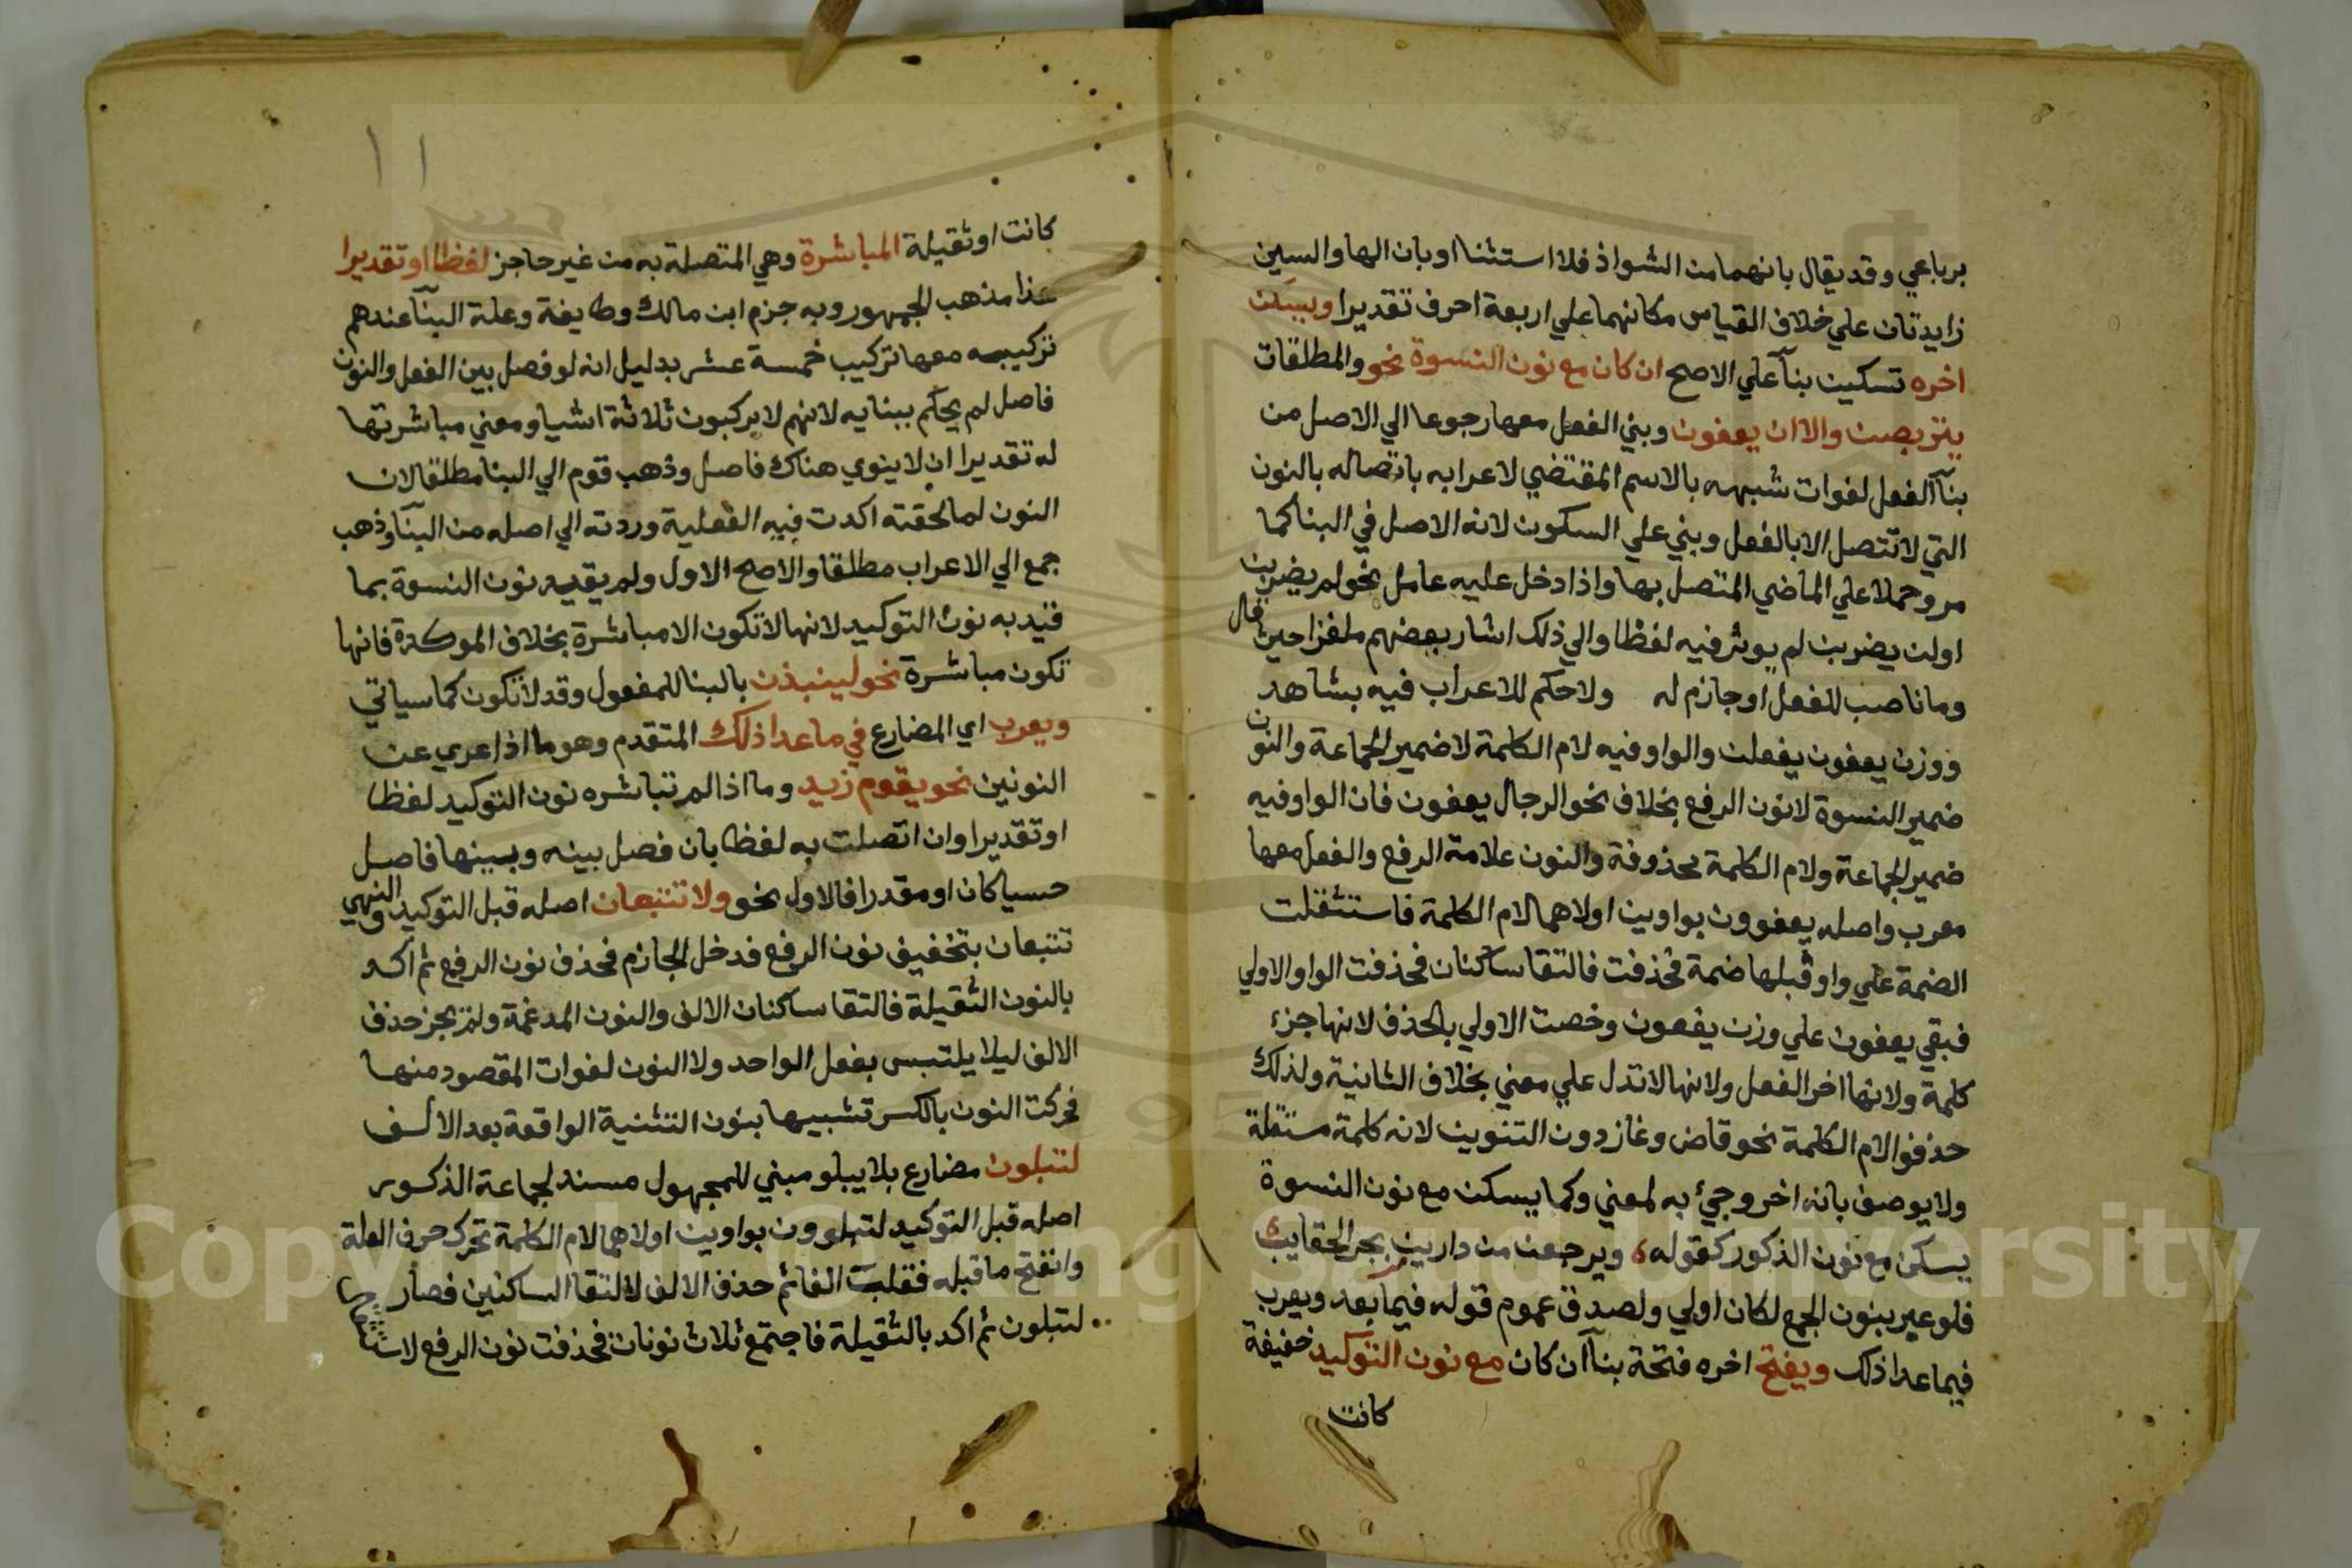 برباعي وقد يقال بانهما من الشواذ فلا استثنا او بان الها والسين
زايدتان علي خلاف القياس مكانهما علي اربعة احرف تقديرا ويسكن
اخره تسكين بنآ علي الاصح ان كان مع نون النسوة نحو والمطلقات
يتربصن والا ان يعفون وبني الفعل معها رجوعا الي الاصل من
بنآ الفعل لفوات شبهه بالاسم المقتضي لاعرابه باتصاله بالنون
التي لا تتصل الا بالفعل وبني علي السكون لانه الاصل في البنا كما
مر وحملا علي الماضي المتصل بها واذا دخل عليه عامل نحو لم يضربن
اولن يضربن لم يوثر فيه لفظا والي ذلك اشار بعضهم ملغزا حين قال
وما ناصب للفعل او جازم له ولا حكم للاعراب فيه بشاهد
ووزن يعفون يفعلن والواو فيه لام الكلمة لا ضمير الجماعة والنون
ضمير النسوة لا نون الرفع بخلاف نحو الرجال يعفون فان الواو فيه
ضمير الجماعة ولام الكلمة محذوفة والنون علامة الرفع والفعل معها
معرب واصله يعفوون بواوين اولاهما لام الكلمة فاستثقلت
الضمة علي واو قبلها ضمة فحذفت فالتقا ساكنان فحذفت الواو الاولي
فبقي يعفون علي وزن يفعون وخصت الاولي بالحذف لانها جزء
كلمة ولانها اخر الفعل ولانها لا تدل علي معني بخلاف الثانية ولذلك
حذفوا لام الكلمة نحو قاض وغاز دون التنوين لانه كلمة مستقلة
ولا يوصف بانه اخر وجيء به لمعني وكما يسكن مع نون النسوة
يسكن مع نون الذكور كقوله ويرجعن من دارين بجر الحقايب
فلو عبر بنون الجمع لكان اولي ولصدق عموم قوله فيما بعد ويعرب
فيما عدا ذلك ويفتح اخره فتحة بنآ ان كان مع نون التوكيد خفيفة
كانت
١١
كانت او ثقيلة المباشرة وهي المتصلة به من غير حاجز لفظا او تقديرا
هذا مذهب الجمهور وبه جزم ابن مالك وطايفة وعلة البنآ عندهم
تركيبه معها تركيب خمسة عشر بدليل انه لو فصل بين الفعل والنون
فاصل لم يحكم ببنايه لانهم لا يركبون ثلاثة اشيا ومعني مباشرتها
له تقديرا ان لا ينوي هناك فاصل وذهب قوم الي البنا مطلقا لان
النون لما لحقته اكدت فيه الفعلية وردته الي اصله من البنآ وذهب
جمع الي الاعراب مطلقا والاصح الاول ولم يقيد نون النسوة بما
قيد به نون التوكيد لانها لا تكون الا مباشرة بخلاف الموكدة فانها
تكون مباشرة نحو لينبذن بالبنا للمفعول وقد لا تكون كما سياتي
ويعرب اي المضارع في ما عدا ذلك المتقدم وهو ما اذا عري عن
النونين نحو يقوم زيد وما اذا لم تباشره نون التوكيد لفظا
او تقديرا وان اتصلت به لفظا بان فصل بينه وبينها فاصل
حسيا كان او مقدرا فالاول نحو ولا تتبعان اصله قبل التوكيد والنهي
تتبعان بتخفيف نون الرفع فدخل الجازم فحذف نون الرفع ثم اكد
بالنون الثقيلة فالتقا ساكنان الالف والنون المدغمة ولم يجز حذف
الالف ليلا يلتبس بفعل الواحد ولا النون لفوات المقصود منها
فحركت النون بالكسر تشبيها بنون التثنية الواقعة بعد الالف
لتبلون مضارع بلا يبلو مبني للمجهول مسند لجماعة الذكور
اصله قبل التوكيد لتبلوون بواوين اولاهما لام الكلمة تحرك حرف العلة
وانفتح ما قبله فقلبت الفا ثم حذف الالف لالتقا الساكنين فصار
لتبلون ثم اكد بالثقيلة فاجتمع ثلاث نونات فحذفت نون الرفع
Copyright © King Saud University